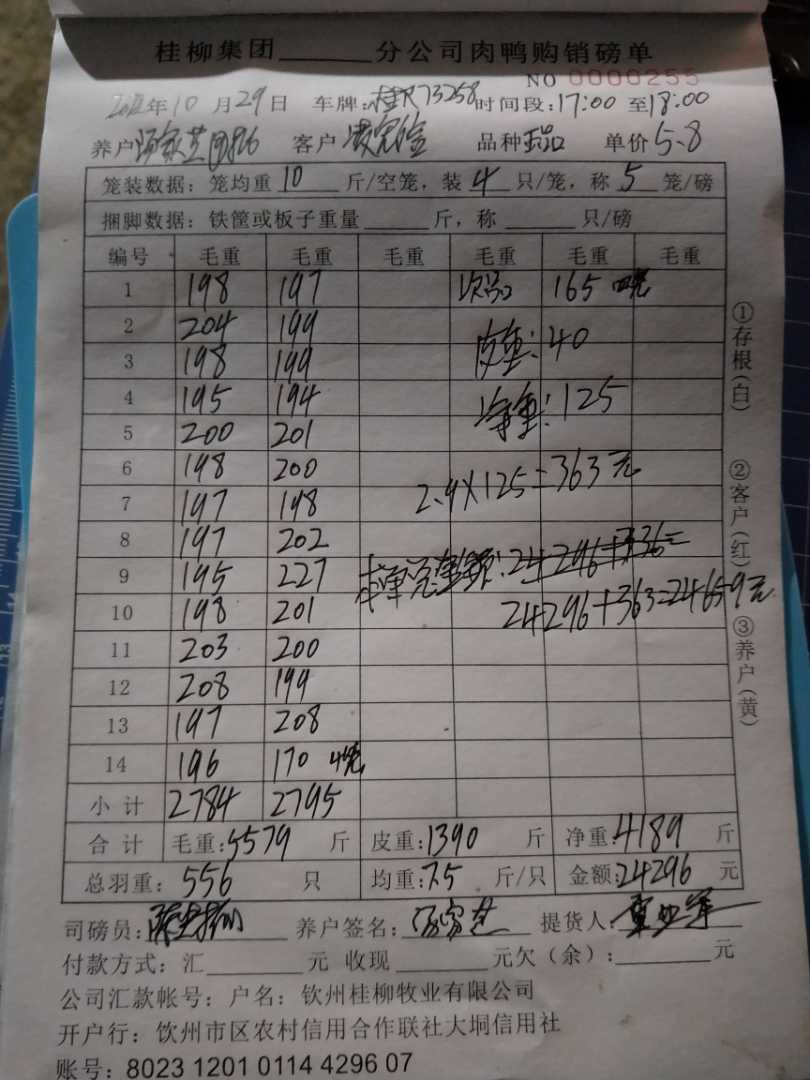 桂柳集团______分公司肉鸭购销磅单
NO 0000255
年10月29日 车牌:桂R73258 时间段:17:00至18:00
养户 客户 品种 单价5.8
笼装数据:笼均重10斤/空笼,装4只/笼,称5笼/磅
捆脚数据:铁筐或板子重量______斤,称______只/磅
编号 毛重 毛重 毛重 毛重 毛重 毛重
1 198 197 次品 165 四笼
2 204 199
3 198 199 皮重:40
4 195 194 净重:125
5 200 201
6 198 200 2.9×125=363元
7 197 198
8 197 202
9 195 227 24296+336=
10 198 201 24296+363=24659元
11 203 200
12 208 199
13 197 208
14 196 170 4笼
小计 2784 2795
合计 毛重:5579斤 皮重:1390斤 净重:4189斤
总羽重:556只 均重:7.5斤/只 金额:24296元
司磅员: 养户签名: 提货人:
付款方式:汇______元 收现______元欠(余):______元
公司汇款帐号:户名:钦州桂柳牧业有限公司
开户行:钦州市区农村信用合作联社大垌信用社
账号:8023 1201 0114 4296 07
①存根(白) ②客户(红) ③养户(黄)